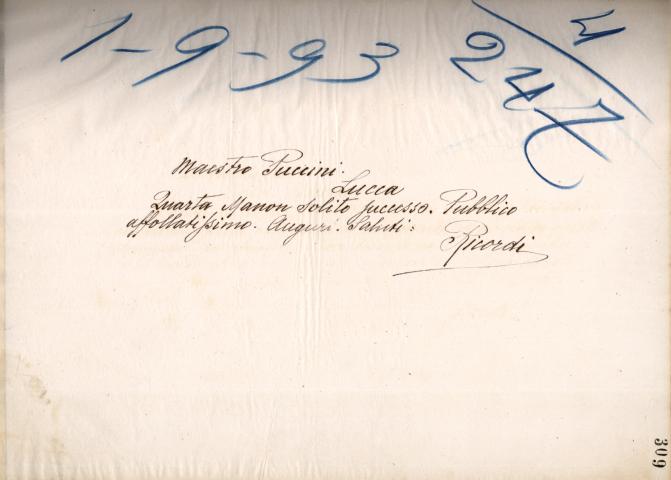 1-9-93 247
Maestro Puccini.
Lucca
Quarta Manon Solito successo. Pubblico
affollatissimo. Auguri. Saluti:
Ricordi
309